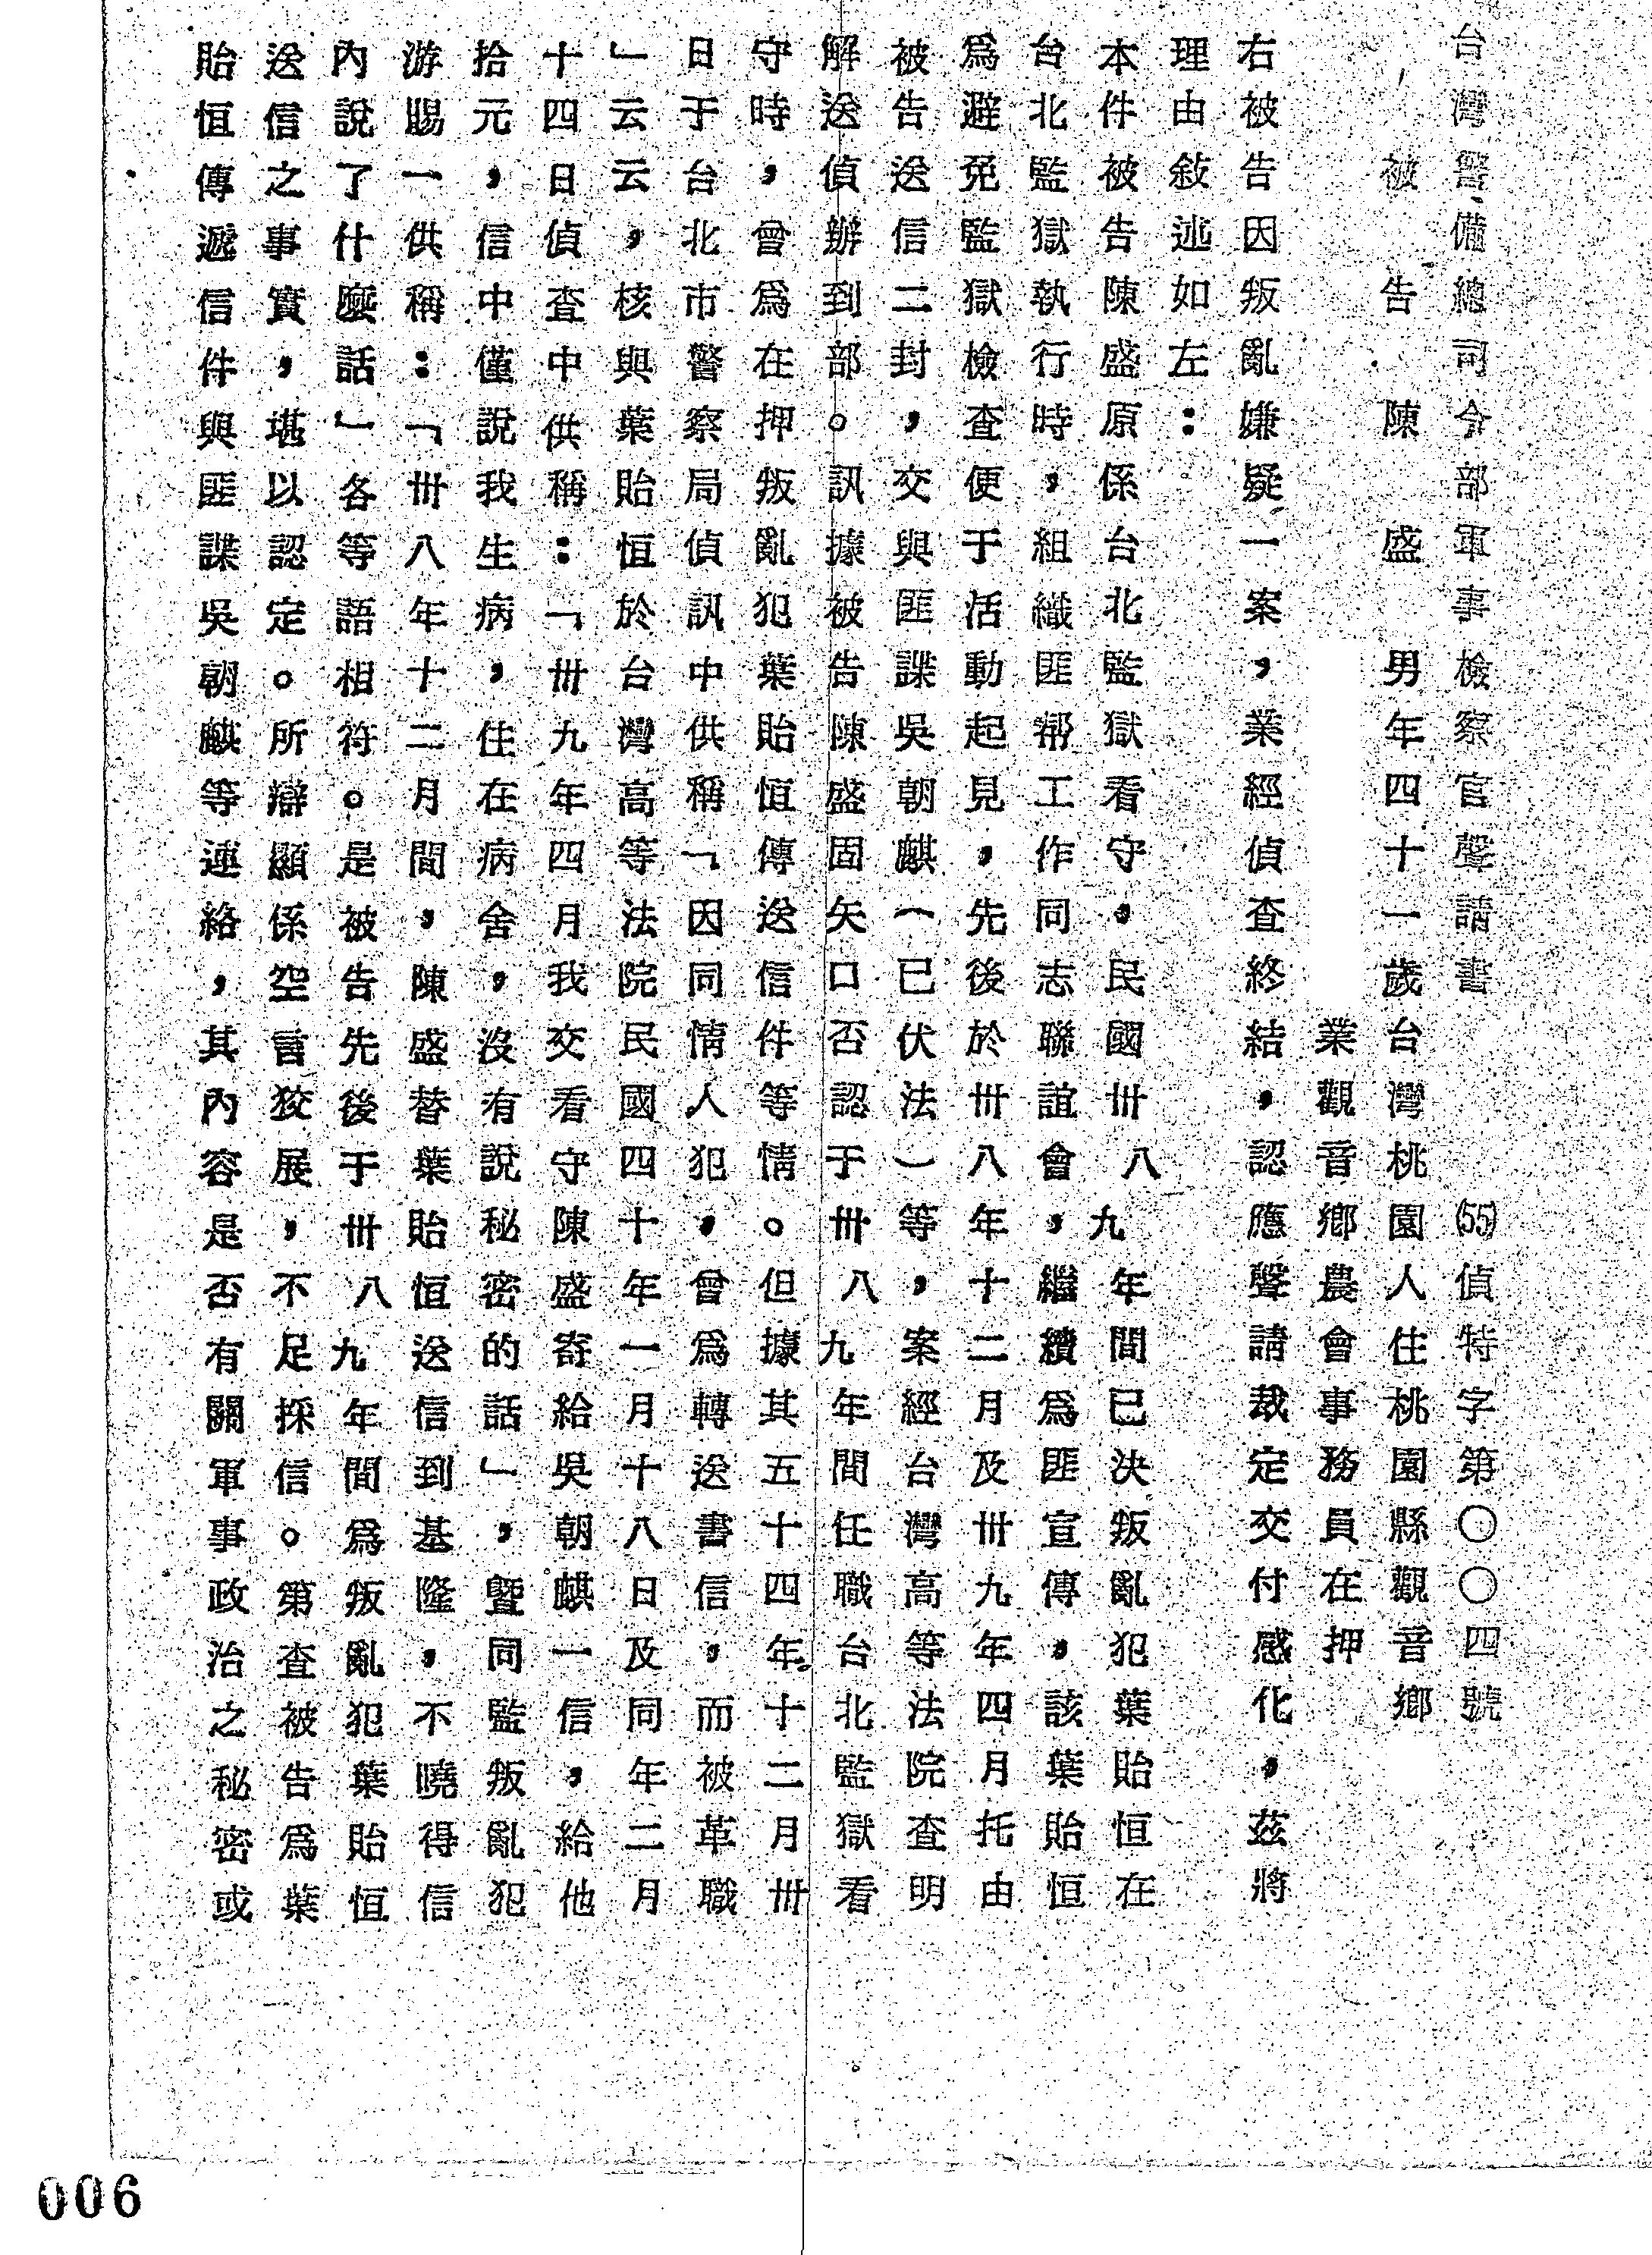 台灣警備總司令部軍事檢察官聲請書 (55)偵特字第〇〇四號
被告 陳盛 男年四十一歲台灣桃園人住桃園縣觀音鄉
業觀音鄉農會事務員在押
右被告因叛亂嫌疑一案，業經偵查終結，認應聲請裁定交付感化，茲將
理由敍述如左：
本件被告陳盛原係台北監獄看守，民國卅八九年間已決叛亂犯葉貽恒在
台北監獄執行時，組織匪幫工作同志聯誼會，繼續爲匪宣傳，該葉貽恒
爲避免監獄檢查便于活動起見，先後於卅八年十二月及卅九年四月托由
被告送信二封，交與匪諜吳朝麒（已伏法）等，案經台灣高等法院查明
解送偵辦到部。訊據被告陳盛固矢口否認于卅八九年間任職台北監獄看
守時，曾爲在押叛亂犯葉貽恒傳送信件等情。但據其五十四年十二月卅
日于台北市警察局偵訊中供稱「因同情人犯，曾爲轉送書信，而被革職
」云云，核與葉貽恒於台灣高等法院民國四十年一月十八日及同年二月
十四日偵查中供稱：「卅九年四月我交看守陳盛寄給吳朝麒一信，給他
拾元，信中僅說我生病，住在病舍，沒有說秘密的話」，曁同監叛亂犯
游賜一供稱：「卅八年十二月間，陳盛替葉貽恒送信到基隆，不曉得信
內說了什麼話」各等語相符。是被告先後于卅八九年間爲叛亂犯葉貽恒
送信之事實，堪以認定。所辯顯係空言狡展，不足採信。第查被告爲葉
貽恒傳遞信件與匪諜吳朝麒等連絡，其內容是否有關軍事政治之秘密或
006